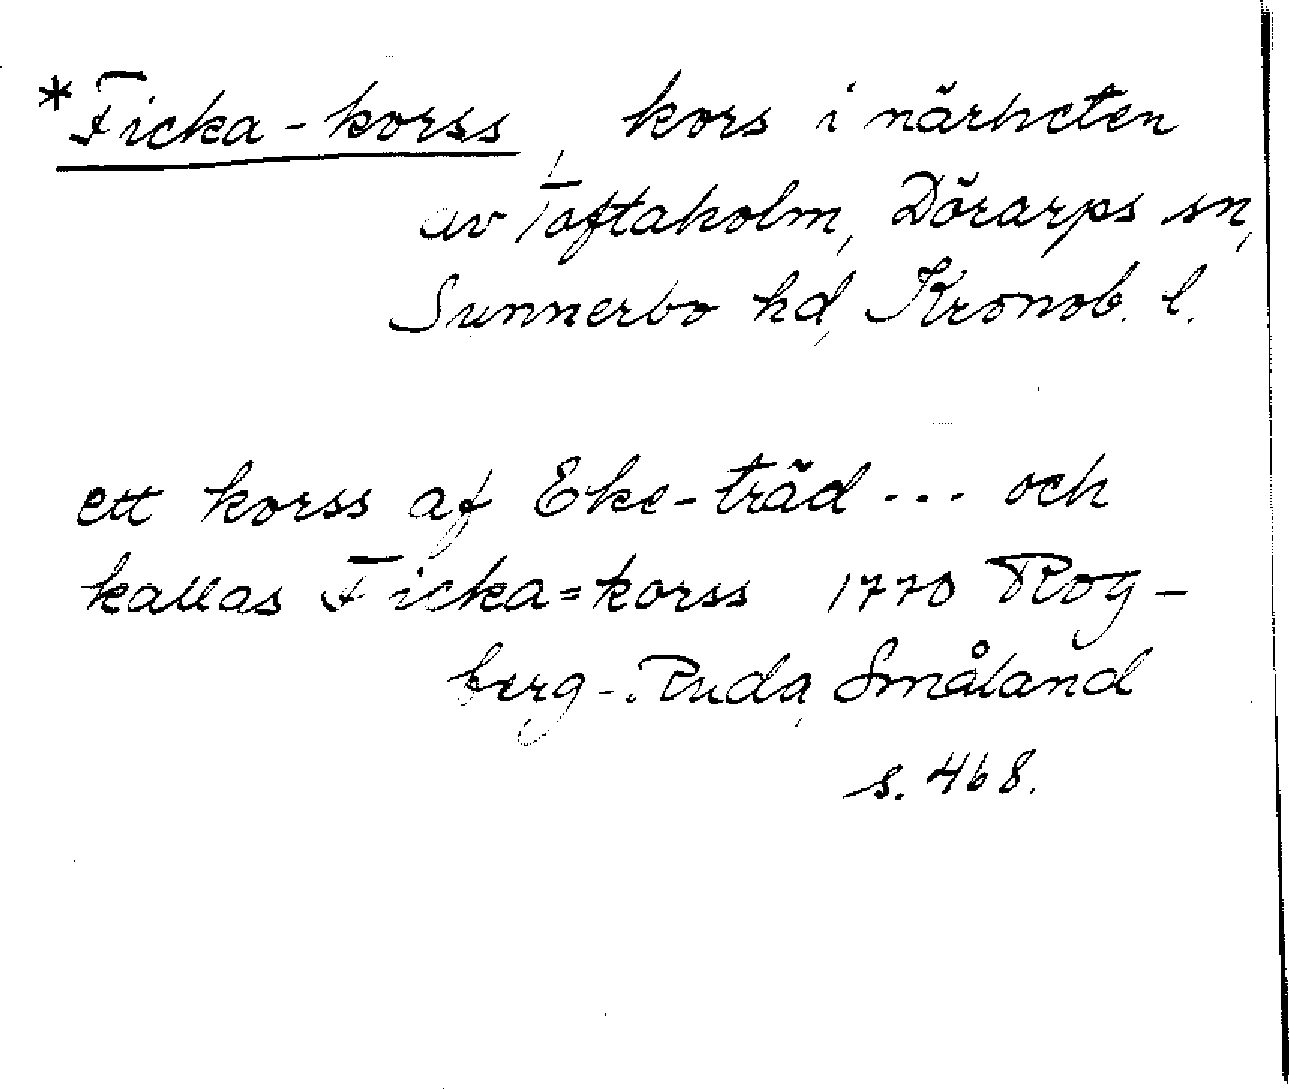 *Ficka-korss, kors i närheten
av Toftaholm, Dörarps sn,
Sunnerbo hd, Kronob. l.
ett korss af Eke-träd ... och
kallas Ficka=korss 1770 Rog-
berg-Ruda, Småland
s. 468.